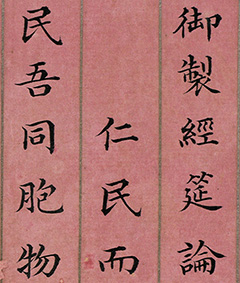 御製經筵論
仁民而
民吾同胞物